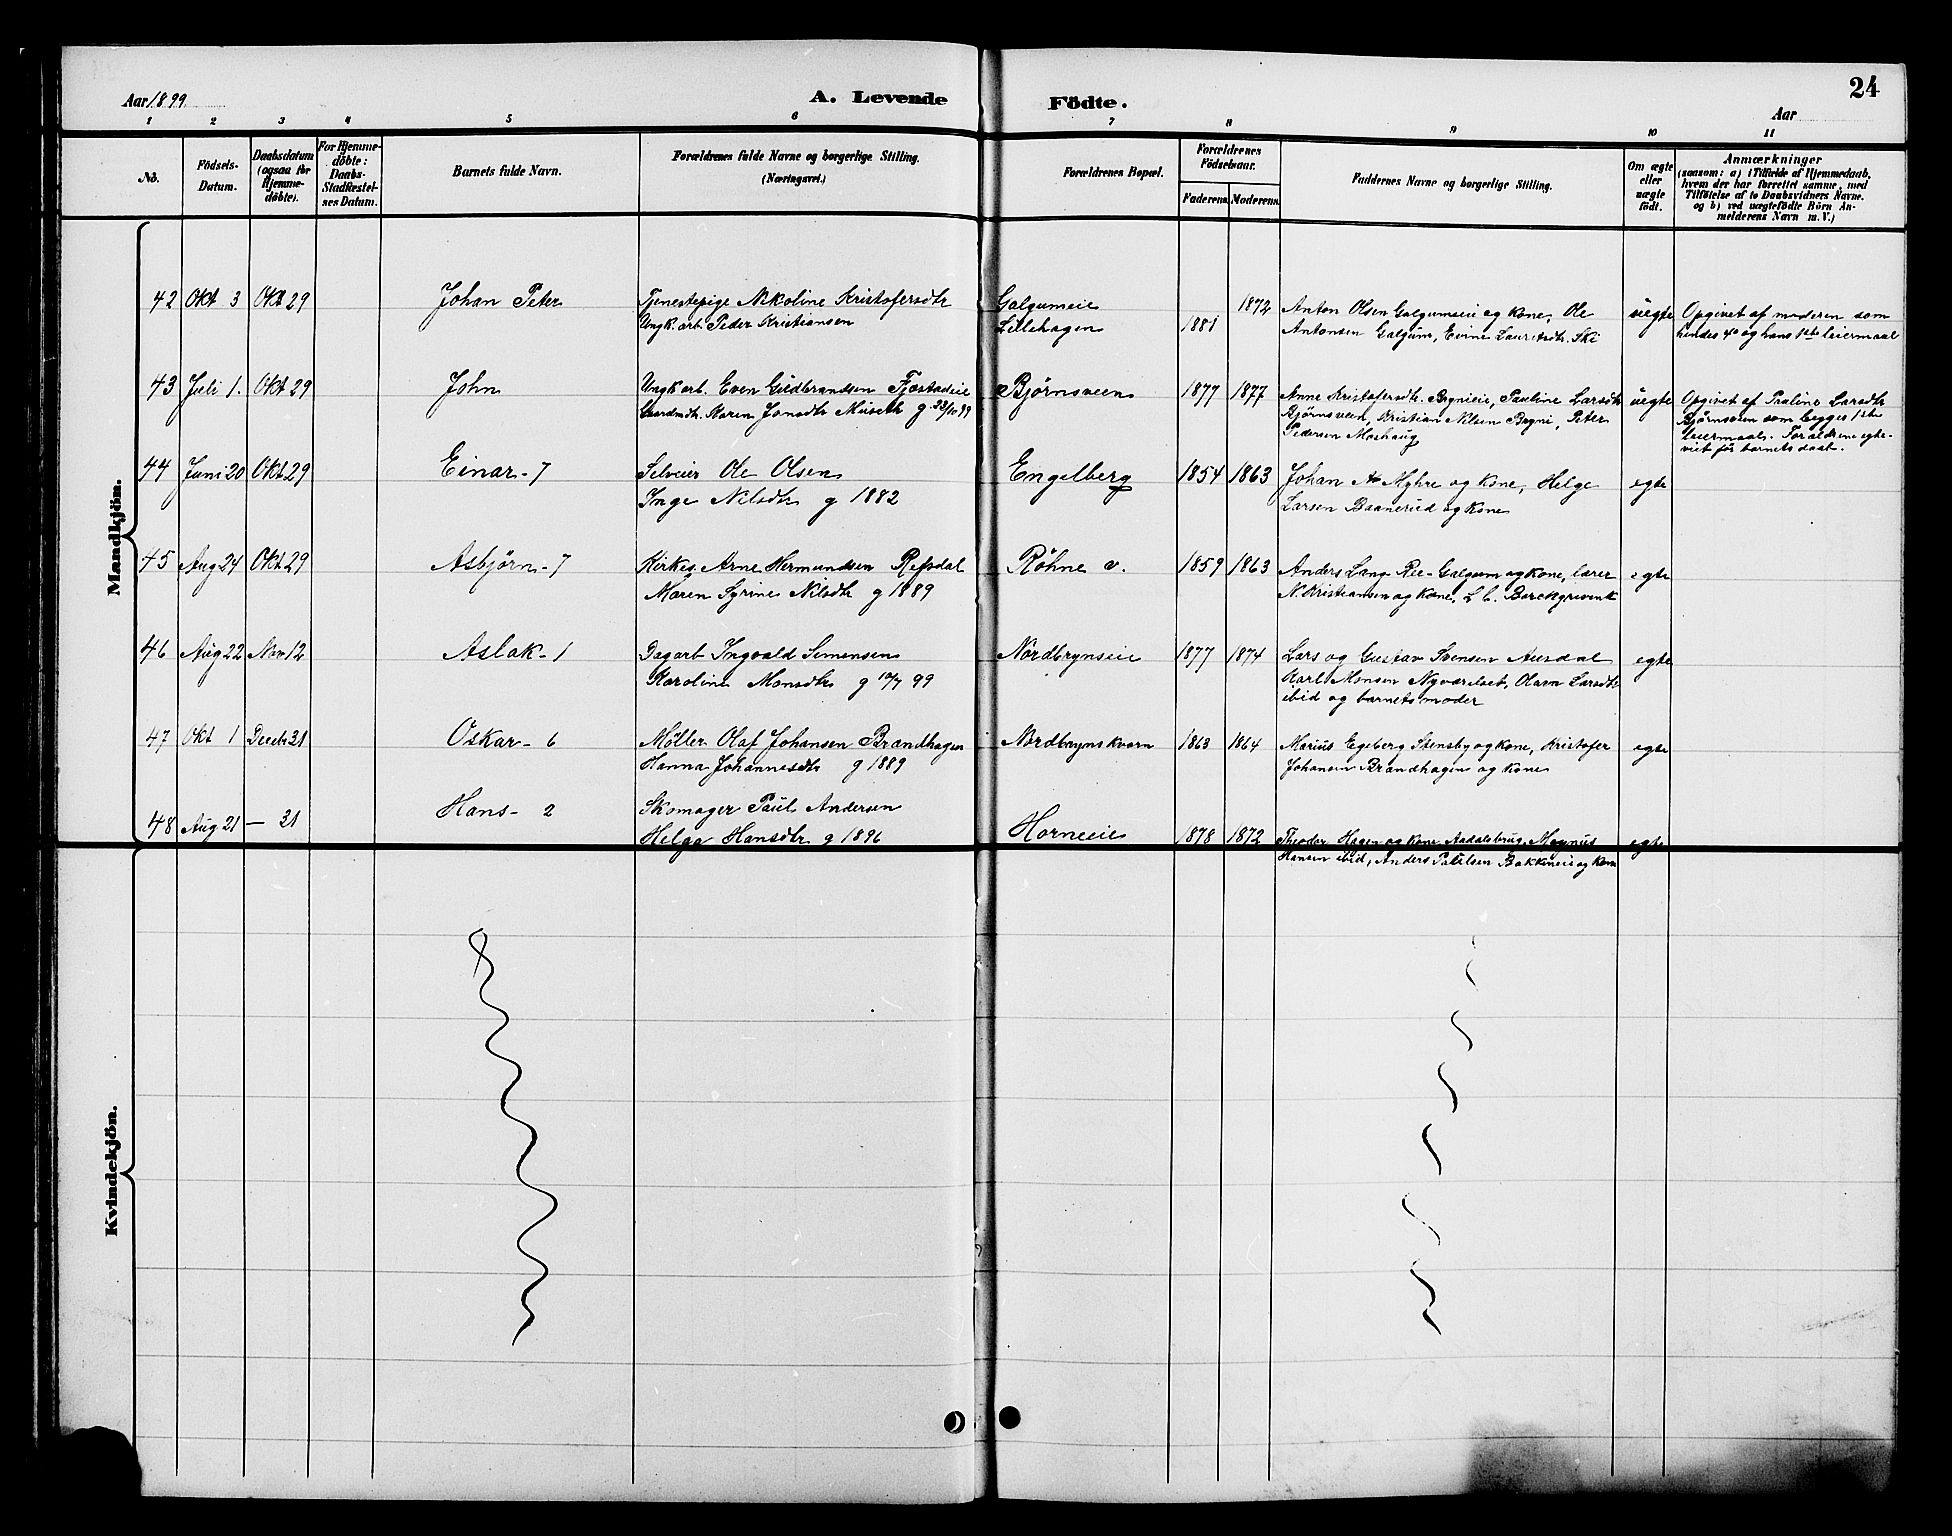 24
Aar 1899
A. Levende Födte.
Aar
1 2 3 4 5 6 7 8 9 10 11
No.
Födsels-Datum.
Daabsdatum (ogsaa for Hjemme-döbte).
For Hjemme-döbte: Daabs-Stadfæstel-ses Datum.
Barnets fulde Navn.
Forældrenes fulde Navne og borgerlige Stilling. (Næringsvei.)
Forældrenes Bopæl.
Forældrenes Födselsaar.
Faderens. Moderens.
Faddernes Navne og borgerlige Stilling.
Om ægte eller uægte födt.
Anmærkninger
(saasom: a) i Tilfælde af Hjemmedaab,
hvem der har forrettet samme, med
Tilföielse af to Daabsvidners Navne.
og b) ved uægtefödte Börn An-
melderens Navn m. V.)
Mandkjön.
42 Okt 3 Okt 29 Johan Peter Tjenestepige Nikoline Kristofersdtr Galgumeie 1872 Anton Olsen Galgumseie og kone, Ole uegte Opgivet af moderen som
Ungk. arb. Peder Kristiansen Lillehagen 1881 Antonsen Galgum, Evine Lauritsdtr. Ski hendes 4de og hans 1ste leiermaal
43 Juli 1. Okt 29 John Ungk arb. Even Gudbrandsen Fjæstadeie Bjørnsveen 1877 1877 Anne Kristofersdtr. Brynieie, Pauline Larsdtr uegte Opgivet af Pauline Larsdtr
Maren Jonsdtr Museth g 22/10 99 Bjørnsveen, Kristian Nilsen Bryni, Peter Bjørnsveen som begges 1ste
Pedersen Moshaug leiermaal. Forældrene egte-
viet før barnets daab.
44 Juni 20 Okt 29 Einar - 7 Selveier Ole Olsen Engelberg 1854 1863 Johan A Myhre og kone, Helge egte
Inge Nilsdtr g 1882 Larsen Baanerud og kone
45 Aug 24 Okt 29 Asbjørn - 7 Kirkes. Arne Hermundsen Refsdal Røhne v. 1859 1863 Anders Lang-Ree-Galgum og kone, lærer egte
Maren Syrine Nilsdtr g 1889 N. Kristiansen og kone, L C. Borchgrevink
46 Aug 22 Nov 12 Aslak - 1 Dagarb Ingvald Simensen Nordbrynseie 1877 1874 Lars og Gustav Svensen Aurdal egte
Karoline Monsdtr g 10/7 99 Karl Monsen Larsdtr
ibid og barnets moder
47 Okt 1 Decb 31 Oskar - 6 Møller Olaf Johansen Brandhagen Nordbrynskvern 1863 1864 Marius Egeberg Stensby og kone, Kristofer egte
Hanna Johannesdtr g 1889 Johansen Brandhagen og kone
48 Aug 21 — 31 Hans - 2 Skomager Paul Andersen Horneeie 1878 1872 Theodor Hagen og kone Aadalsbrug, Magnus egte
Helga Hansdtr g 1896 Hansen ibid, Anders Paulsen Bakkeneie og kone
Kvindekjön.